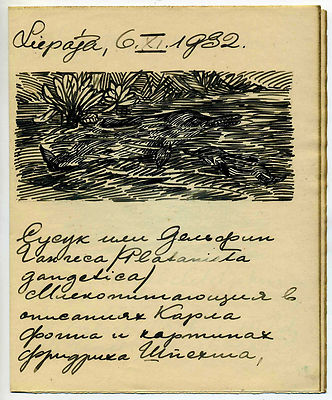 Liepāja, 6.XI.1932.
Сусук или Дельфин
Гангеса /Platanista
gangetica/
Млекопитающия в
описаниях Карла
Фогта и картинах
Фридриха Шпехта,